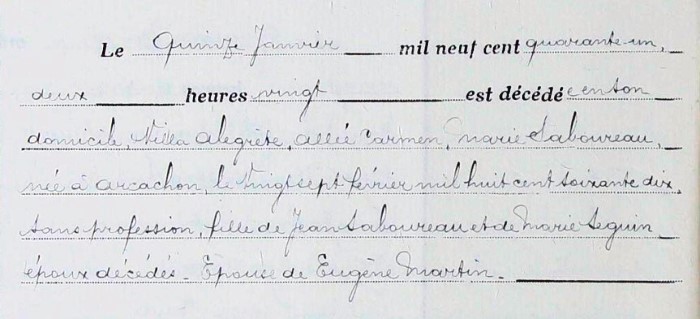 Le Quinze Janvier mil neuf cent quarante un,
deux heures vingt est décédée en son
domicile, Villa Alegrète, allée Carmen, Marie Laboureau,
née à Arcachon, le vingt sept février mil huit cent soixante dix.
sans profession, fille de Jean Laboureau et de Marie Seguin
époux décédés - Épouse de Eugène Martin -